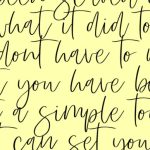 what it did to
dont have to
you have be
a simple to
can set you